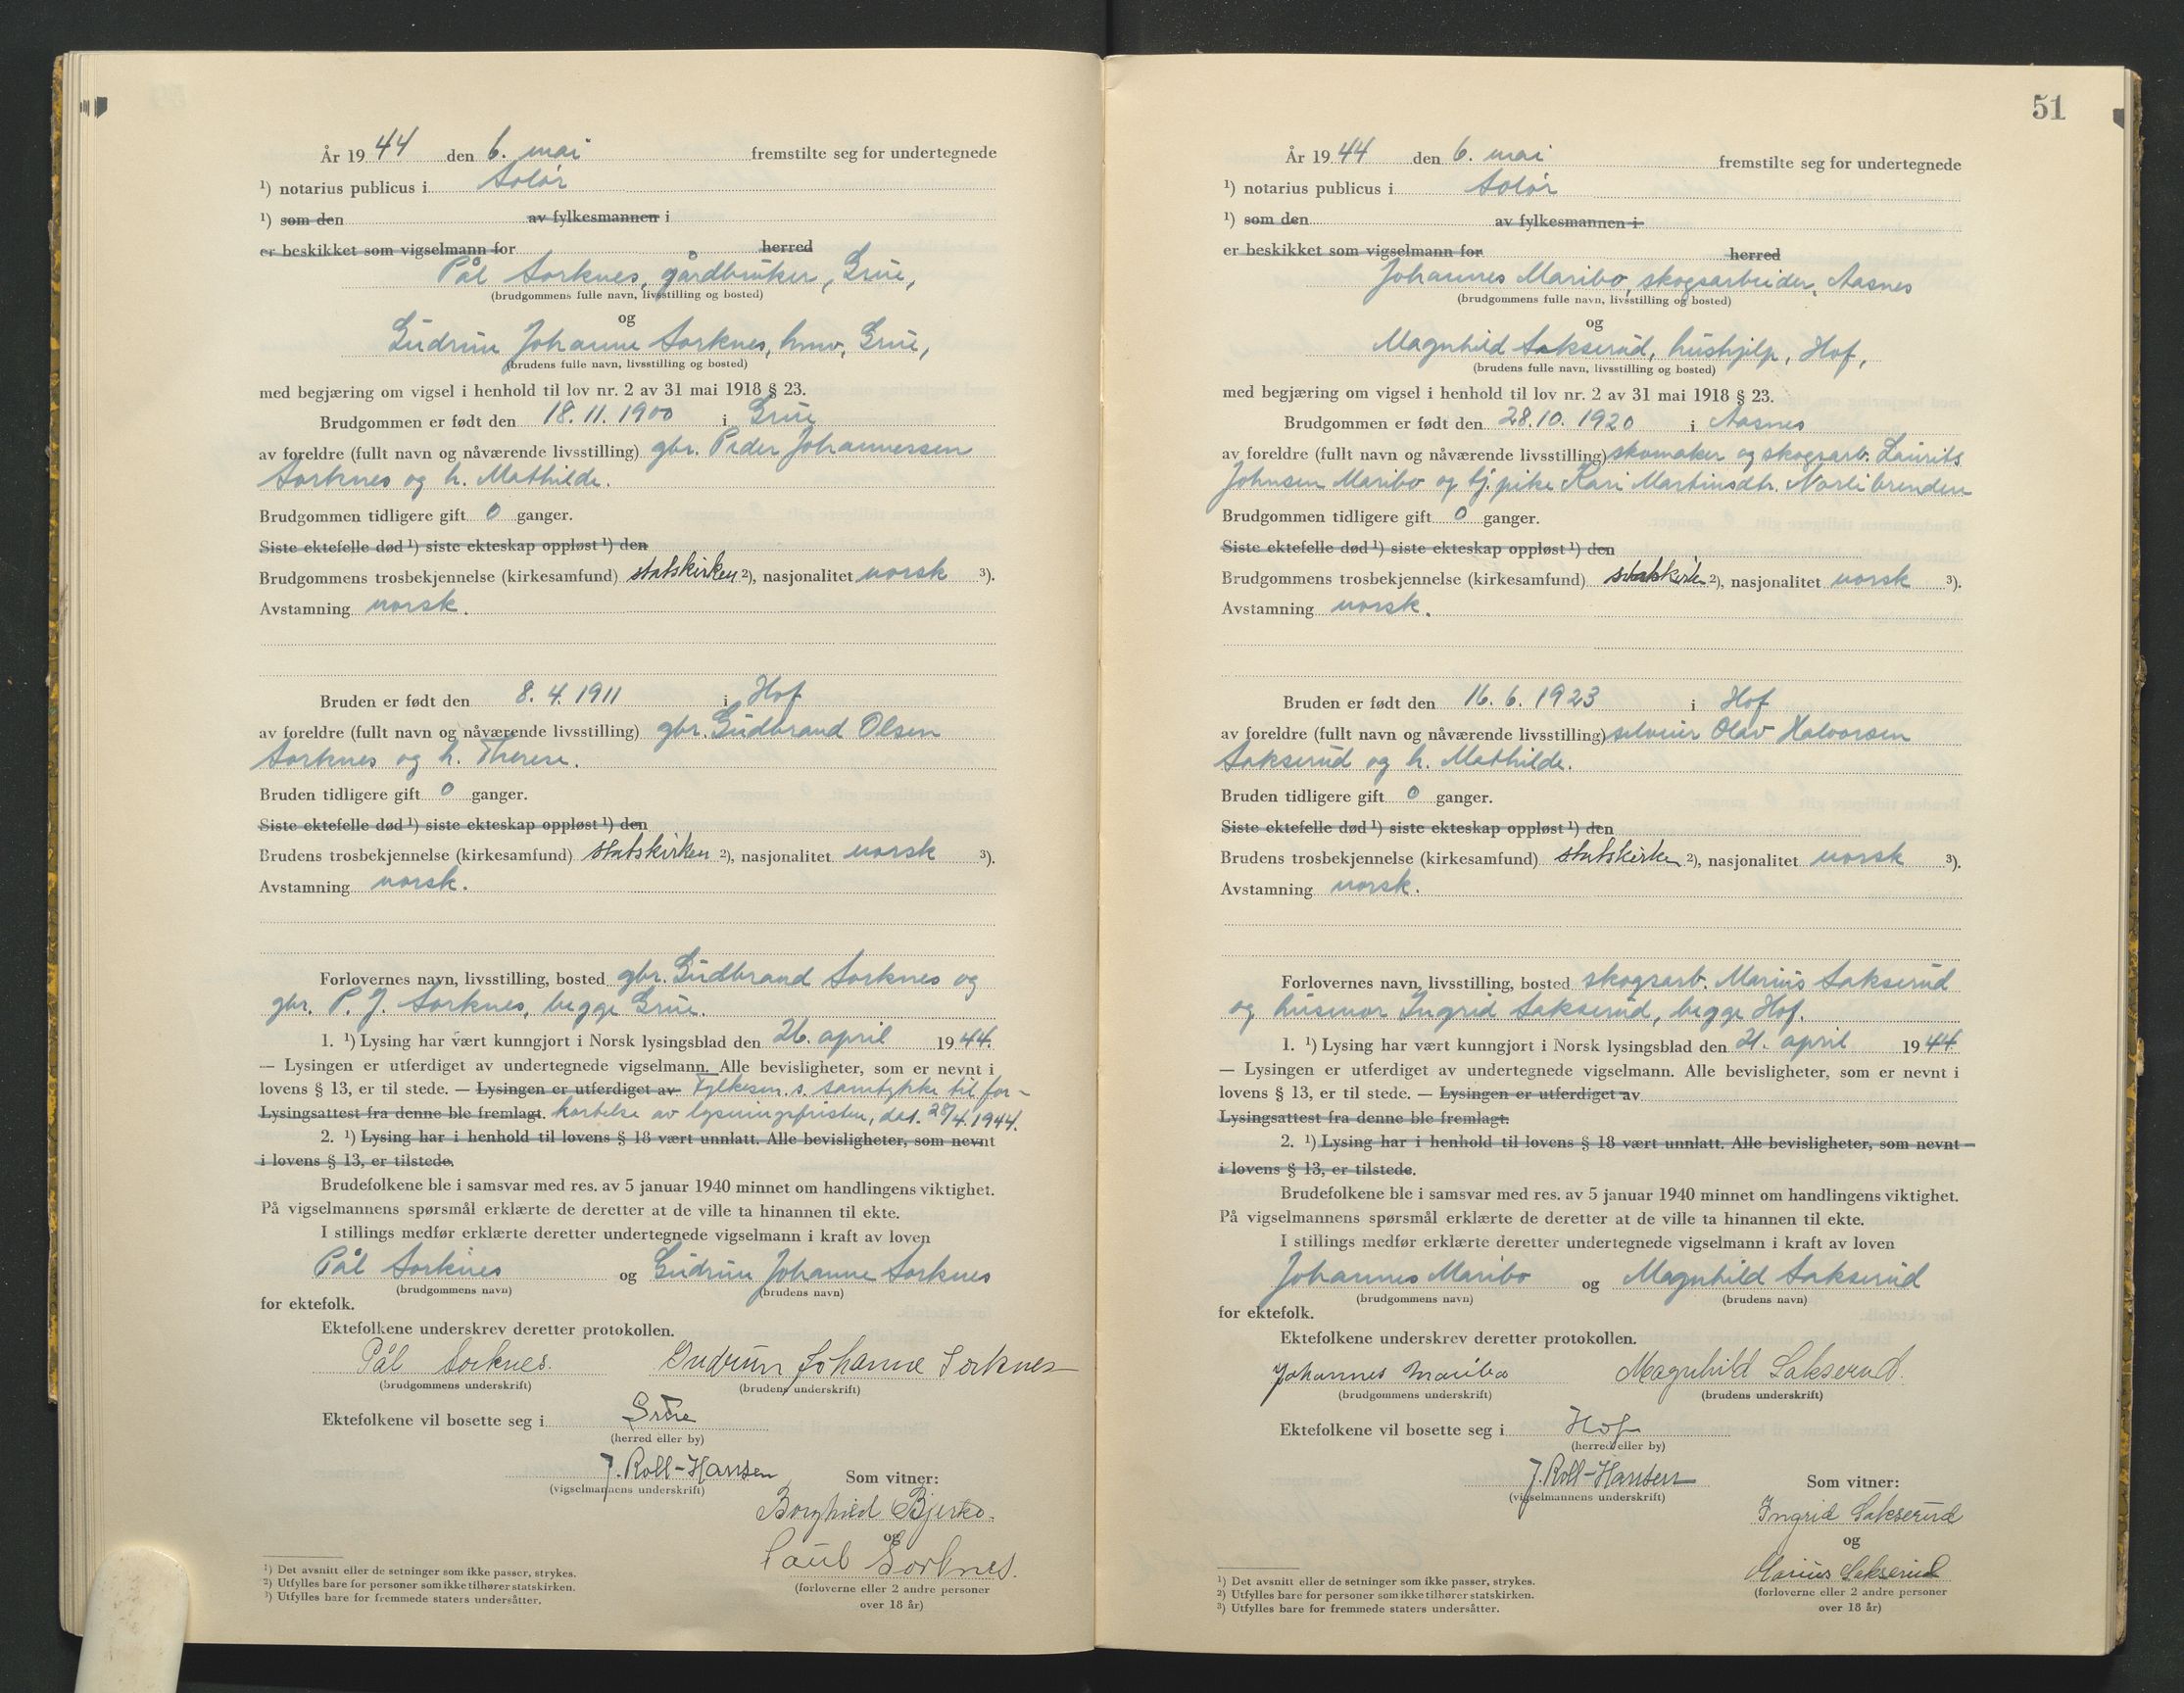 År 1944 den 6. mai fremstilte seg for undertegnede
¹) notarius publicus i Solør
¹) som den av fylkesmannen i
er beskikket som vigselmann for herred
Pål Sorknes, gårdbruker, Grue,
(brudgommens fulle navn, livsstilling og bosted)
og
Gudrun Johanne Sorknes, hmv, Grue,
(brudens fulle navn, livsstilling og bosted)
med begjæring om vigsel i henhold til lov nr. 2 av 31 mai 1918 § 23.
Brudgommen er født den 18.11.1900 i Grue
av foreldre (fullt navn og nåværende livsstilling) gbr. Peder Johannessen
Sorknes og h. Mathilde.
Brudgommen tidligere gift 0 ganger.
Siste ektefelle død ¹) siste ekteskap oppløst ¹) den
Brudgommens trosbekjennelse (kirkesamfund) statskirken ²), nasjonalitet norsk ³).
Avstamning norsk.
Bruden er født den 8.4.1911 i Hof
av foreldre (fullt navn og nåværende livsstilling) gbr. Gudbrand Olsen
Sorknes og h. Therese.
Bruden tidligere gift 0 ganger.
Siste ektefelle død ¹) siste ekteskap oppløst ¹) den
Brudens trosbekjennelse (kirkesamfund) statskirken ²), nasjonalitet norsk ³).
Avstamning norsk.
Forlovernes navn, livsstilling, bosted gbr. Gudbrand Sorknes og
gbr. P. J. Sorknes, begge Grue.
1. ¹) Lysing har vært kunngjort i Norsk lysingsblad den 26. april 1944.
— Lysingen er utferdiget av undertegnede vigselmann. Alle bevisligheter, som er nevnt i
lovens § 13, er til stede. — Lysingen er utferdiget av Fylkesm.s. samtykke til for-
Lysingsattest fra denne ble fremlagt. kortelse av lysningsfristen, dat. 28/4.1944.
2. ¹) Lysing har i henhold til lovens § 18 vært unnlatt. Alle bevisligheter, som nevnt
i lovens § 13, er tilstede.
Brudefolkene ble i samsvar med res. av 5 januar 1940 minnet om handlingens viktighet.
På vigselmannens spørsmål erklærte de deretter at de ville ta hinannen til ekte.
I stillings medfør erklærte deretter undertegnede vigselmann i kraft av loven
Pål Sorknes og Gudrun Johanne Sorknes
(brudgommens navn) (brudens navn)
for ektefolk.
Ektefolkene underskrev deretter protokollen.
Pål Sorknes. Gudrun Johanne Sorknes
(brudgommens underskrift) (brudens underskrift)
Ektefolkene vil bosette seg i Grue
(herred eller by)
J. Roll-Hansen Som vitner:
(vigselmannens underskrift)
Borghild Bjerke.
og
Paul Sorknes.
(forloverne eller 2 andre personer
over 18 år)
¹) Det avsnitt eller de setninger som ikke passer, strykes.
²) Utfylles bare for personer som ikke tilhører statskirken.
³) Utfylles bare for fremmede staters undersåtter.
51
År 1944 den 6. mai fremstilte seg for undertegnede
¹) notarius publicus i Solør
¹) som den av fylkesmannen i
er beskikket som vigselmann for herred
Johannes Maribo, skogsarbeider, Aasnes
(brudgommens fulle navn, livsstilling og bosted)
og
Magnhild Sakserud, hushjelp, Hof,
(brudens fulle navn, livsstilling og bosted)
med begjæring om vigsel i henhold til lov nr. 2 av 31 mai 1918 § 23.
Brudgommen er født den 28.10.1920 i Aasnes
av foreldre (fullt navn og nåværende livsstilling) skomaker og skogsarb. Laurits
Johnsen Maribo og tj. pike Kari Martinsdtr. Norlibrenden
Brudgommen tidligere gift 0 ganger.
Siste ektefelle død ¹) siste ekteskap oppløst ¹) den
Brudgommens trosbekjennelse (kirkesamfund) statskirken ²), nasjonalitet norsk ³).
Avstamning norsk.
Bruden er født den 16.6.1923 i Hof
av foreldre (fullt navn og nåværende livsstilling) selveier Olav Halvorsen
Sakserud og h. Mathilde.
Bruden tidligere gift 0 ganger.
Siste ektefelle død ¹) siste ekteskap oppløst ¹) den
Brudens trosbekjennelse (kirkesamfund) statskirken ²), nasjonalitet norsk ³).
Avstamning norsk.
Forlovernes navn, livsstilling, bosted skogsarb. Marius Sakserud
og husmor Ingrid Sakserud, begge Hof.
1. ¹) Lysing har vært kunngjort i Norsk lysingsblad den 21. april 1944
— Lysingen er utferdiget av undertegnede vigselmann. Alle bevisligheter, som er nevnt i
lovens § 13, er til stede. — Lysingen er utferdiget av
Lysingsattest fra denne ble fremlagt.
2. ¹) Lysing har i henhold til lovens § 18 vært unnlatt. Alle bevisligheter, som nevnt
i lovens § 13, er tilstede.
Brudefolkene ble i samsvar med res. av 5 januar 1940 minnet om handlingens viktighet.
På vigselmannens spørsmål erklærte de deretter at de ville ta hinannen til ekte.
I stillings medfør erklærte deretter undertegnede vigselmann i kraft av loven
Johannes Maribo og Magnhild Sakserud
(brudgommens navn) (brudens navn)
for ektefolk.
Ektefolkene underskrev deretter protokollen.
Johannes Maribo Magnhild Sakserud.
(brudgommens underskrift) (brudens underskrift)
Ektefolkene vil bosette seg i Hof
(herred eller by)
J. Roll-Hansen Som vitner:
(vigselmannens underskrift)
Ingrid Sakserud
og
Marius Sakserud
(forloverne eller 2 andre personer
over 18 år)
¹) Det avsnitt eller de setninger som ikke passer, strykes.
²) Utfylles bare for personer som ikke tilhører statskirken.
³) Utfylles bare for fremmede staters undersåtter.